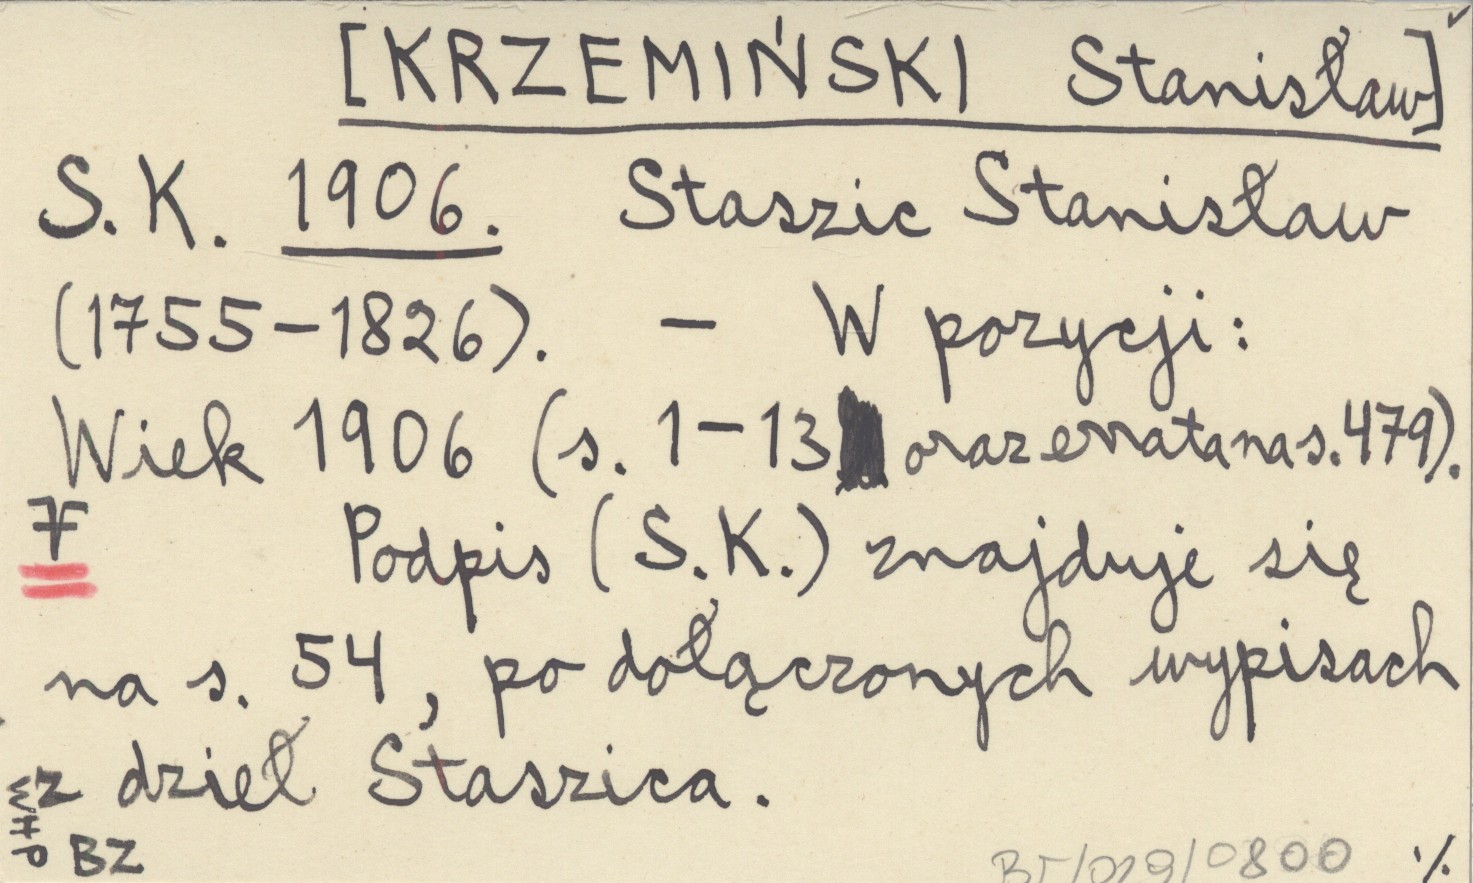 [KRZEMIŃSKI Stanisław]
S.K. 1906. Staszic Stanisław
(1755-1826). – W pozycji:
Wiek 1906 (s. 1-13 oraz errata na s. 479).
F
Podpis (S.K.) znajduje się
na s. 54, po dołączonych wypisach
z dzieł Staszica.
WHP
BZ
BI/029/0800
./.